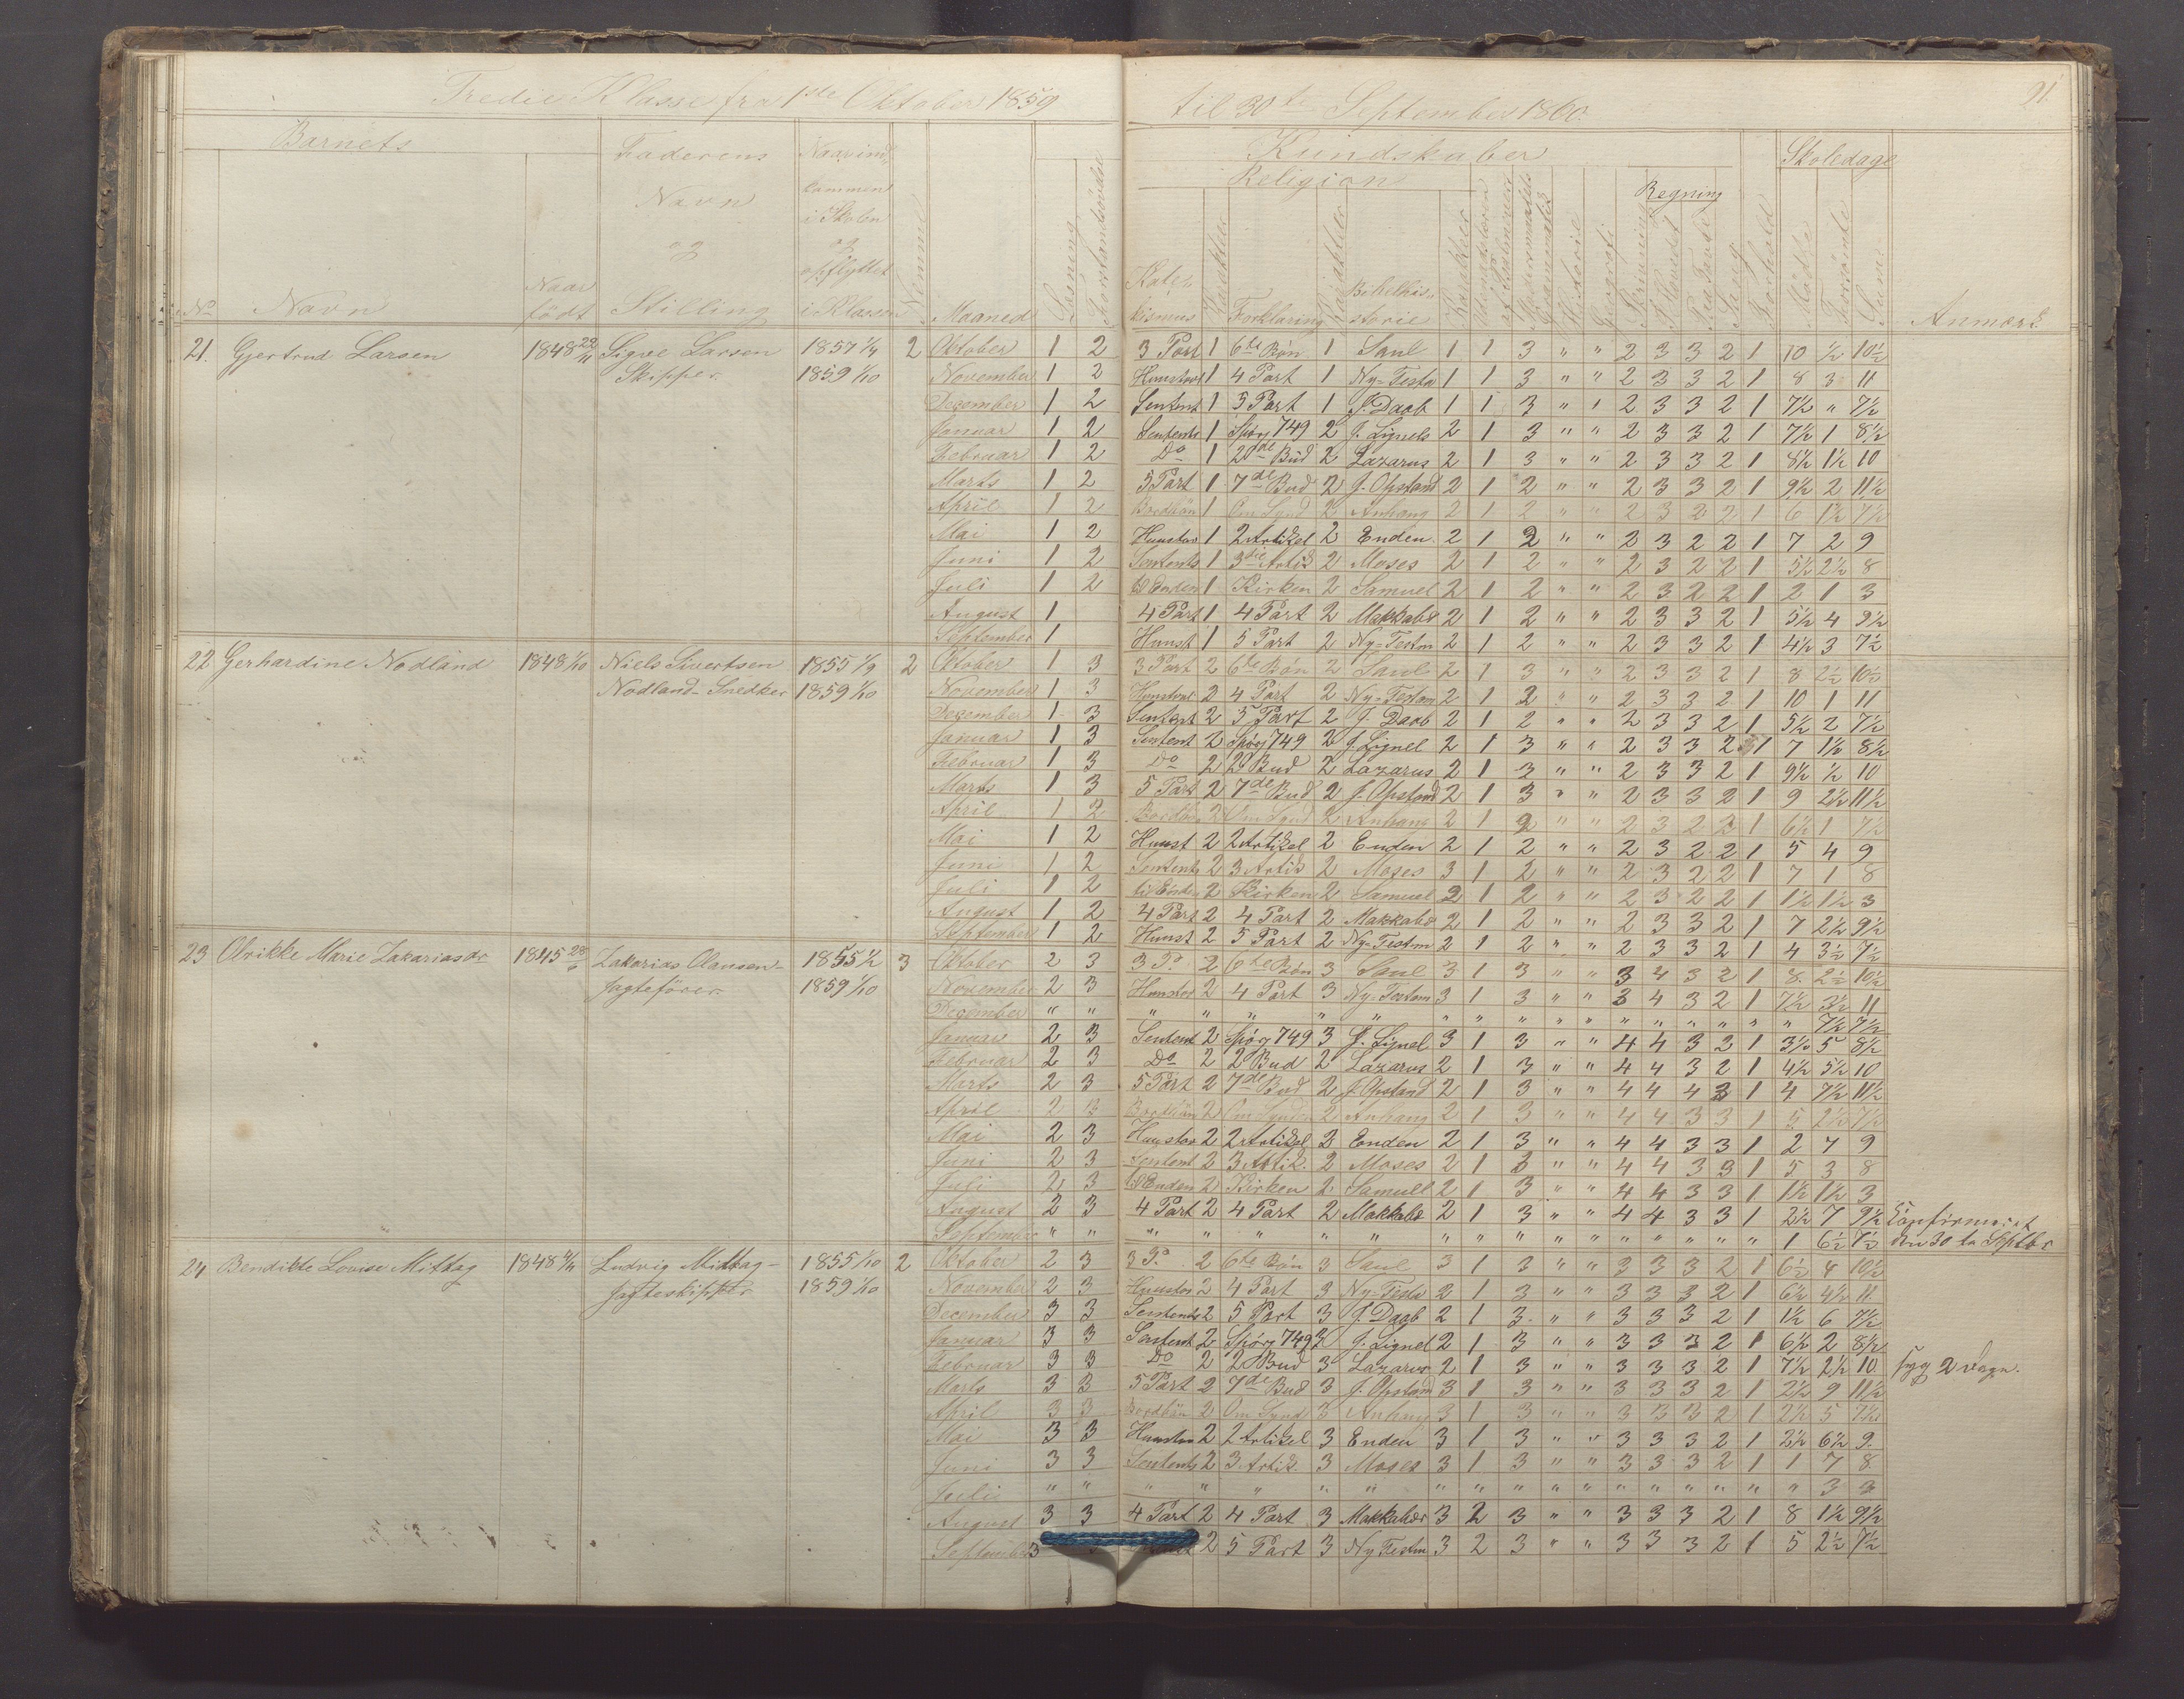 Tredie Klasse fra 1ste Oktober 1859 til 30te September 1860.
91.
Barnets
Faderens
Navn
og
Stilling
Naar ind
kommen
i Skolen
og
opflyttet
i Klassen
Kundskaber
Religion
Regning
Skoledage
No Navn Naar født Nemme Maaned Læsning
Katekismus Karakter Forklaring Karakter Bibelhistorie Karakter
Historie Geografi Skrivning I Hovedet Paa Tavle Sang Forhold Mødte Forsømte Sum Anmærk.
21. Gjertrud Larsen 1848 22/11 Sigve Larsen 1857 1/4 2 Oktober 1 2 3 Part 1 6te Bøn 1 Saul 1 1 3 " " 2 3 3 2 1 10 ½ 10½
Skipper 1859 1/10 November 1 2 Hunstavl 1 4 Part 1 Ny-Testa 1 1 3 " " 2 3 3 2 1 8 3 11
December 1 2 Sentent 1 5 Part 1 J. Daab 1 1 3 " " 2 3 3 2 1 7½ " 7½
Januar 1 2 Sentents 1 Spørg 749 2 J. Lignels 2 1 3 " " 2 3 3 2 1 7½ 1 8½
Februar 1 2 Do 1 2de Bud 2 Lazarus 2 1 3 " " 2 3 3 2 1 8½ 1½ 10
Marts 1 2 5 Part 1 7de Bud 2 J. Opstand 2 1 2 " " 2 3 3 2 1 9½ 2 11½
April 1 2 Bordbøn 1 Om Synd 2 Anhang 2 1 2 " " 2 3 2 2 1 6 1½ 7½
Mai 1 2 Hunstav 1 2 Artikel 2 Enden 2 1 2 " " 2 3 2 2 1 7 2 9
Juni 1 2 Sentents 1 3die Artik 2 Moses 2 1 2 " " 2 3 2 2 1 5½ 2½ 8
Juli 1 2 til Enden 1 Kirken 2 Samuel 2 1 2 " " 2 3 2 2 1 2 1 3
August 1 4 Part 1 4 Part 2 Makkabæ 2 1 2 " " 2 3 3 2 1 5½ 4 9½
September 1 Hunst 1 5 Part 2 Ny-Testm 2 1 2 " " 2 3 3 2 1 4½ 3 7½
22 Gerhardine Nodland 1848 1/10 Niels Sivertsen 1855 1/9 2 Oktober 1 3 3 Part 2 6te Bøn 2 Saul 2 1 3 " " 2 3 3 2 1 8 2½ 10½
Nodland-Snedker 1859 1/10 November 1 3 Hunstavl 2 4 Part 2 Ny-Testam 2 1 2 " " 2 3 3 2 1 10 1 11
December 1 3 Sentent 2 5 Part 2 J. Daab 2 1 2 " " 2 3 3 2 1 5½ 2 7½
Januar 1 3 Sentent 2 Spørg 749 2 J. Lignel 2 1 3 " " 2 3 3 2 1 7 1½ 8½
Februar 1 3 Do 2 2 Bud 2 Lazarus 2 1 3 " " 2 3 3 2 1 9½ ½ 10
Marts 1 3 5 Part 2 7de Bud 2 J. Opstand 2 1 3 " " 2 3 3 2 1 9 2½ 11½
April 1 2 Bordbøn 2 Om Synd 2 Anhang 2 1 2 " " 2 3 2 2 1 6½ 1 7½
Mai 1 2 Hunst 2 2 Artikel 2 Enden 2 1 2 " " 2 3 2 2 1 5 4 9
Juni 1 2 Sentents 2 3 Artik 2 Moses 3 1 2 " " 2 3 2 2 1 7 1 8
Juli 1 2 til Enden 2 Kirken 2 Samuel 2 1 2 " " 2 3 2 2 1 1½ 1½ 3
August 1 2 4 Part 2 4 Part 2 Makkabæ 2 1 2 " " 2 3 3 2 1 7 2½ 9½
September 1 2 Hunst 2 5 Part 2 Ny-Testm 2 1 2 " " 2 3 3 2 1 4 3½ 7½
23 Olrikke Marie Zakariasdr 1845 Zakarias Olausen- 1855 1/2 3 Oktober 2 3 3 P. 2 6te Bøn 3 Saul 3 1 3 " " 3 4 3 2 1 8 2½ 10½
Jagtefører 1859 1/10 November 2 3 Hunstav 2 4 Part 3 Ny-Testam 3 1 3 " " 3 4 3 2 1 7½ 3½ 11
December " " " " " " " " " " " " " " " " " " 7½ 7½
Januar 2 3 Sentent 2 Spørg 749 3 J. Lignel 3 1 3 " " 4 4 3 2 1 3½ 5 8½
Februar 2 3 Do 2 2 Bud 2 Lazarus 2 1 3 " " 4 4 3 2 1 4½ 5½ 10
Marts 2 3 5 Part 2 7de Bud 2 J. Opstand 2 1 3 " " 4 4 4 3 1 4 7½ 11½
April 2 3 Bordbøn 2 Om Synden 2 Anhang 2 1 3 " " 4 4 3 3 1 5 2½ 7½
Mai 2 3 Hunstav 2 2 Artikel 2 Enden 2 1 3 " " 4 4 3 3 1 2 7 9
Juni 2 3 Sentent 2 3 Artik. 2 Moses 2 1 3 " " 4 4 3 3 1 5 3 8
Juli 2 3 til Enden 2 Kirken 2 Samuel 2 1 3 " " 4 4 3 3 1 1½ 1½ 3
August 2 3 4 Part 2 4 Part 2 Makkabæ 2 1 3 " " 4 4 3 3 1 2½ 7 9½ Confirmeret
September " " " " " " " " " " " " " " " " " 1 6½ 7½ den 30te Septbr
24 Bendikte Lovise Mittag 1848 Ludvig Mittag- 1855 1/10 2 Oktober 2 3 3 P. 2 6te Bøn 3 Saul 3 1 3 " " 3 3 3 2 1 6½ 4 10½
Jagteskipper 1859 1/10 November 2 3 Hunstav 2 4 Part 3 Ny-Testa 2 1 3 " " 3 3 3 2 1 6½ 4½ 11
December 3 3 Sentents 2 5 Part 3 J. Daab 2 1 3 " " 3 3 3 2 1 1½ 6 7½
Januar 3 3 Sentent 2 Spørg 749 3 J. Lignel 2 1 3 " " 3 3 3 2 1 6½ 2 8½
Februar 3 3 Do 2 2 Bud 3 Lazarus 2 1 3 " " 3 3 3 2 1 7½ 2½ 10 syg 2 dage.
Marts 3 3 5 Part 2 7de Bud 3 J. Opstand 3 1 3 " " 3 3 3 2 1 2½ 9 11½
April 3 3 Bordbøn 2 Om Synd 3 Anhang 3 1 3 " " 3 3 3 2 1 2½ 5 7½
Mai 3 3 Hunstav 2 2 Artikel 3 Enden 3 1 3 " " 3 3 3 2 1 2½ 6½ 9
Juni 3 3 Sentents 2 3 Artik. 3 Moses 3 1 3 " " 3 3 3 2 1 1 7 8
Juli " " " " " " " " " " " " " " " " " " 3 3
August 3 3 4 Part 2 4 Part 3 Makkabæer 3 2 3 " " 3 3 3 2 1 8 1½ 9½
September 3 2 5 Part 3 Ny Testm 3 2 3 " " 3 3 3 2 1 5 2½ 7½